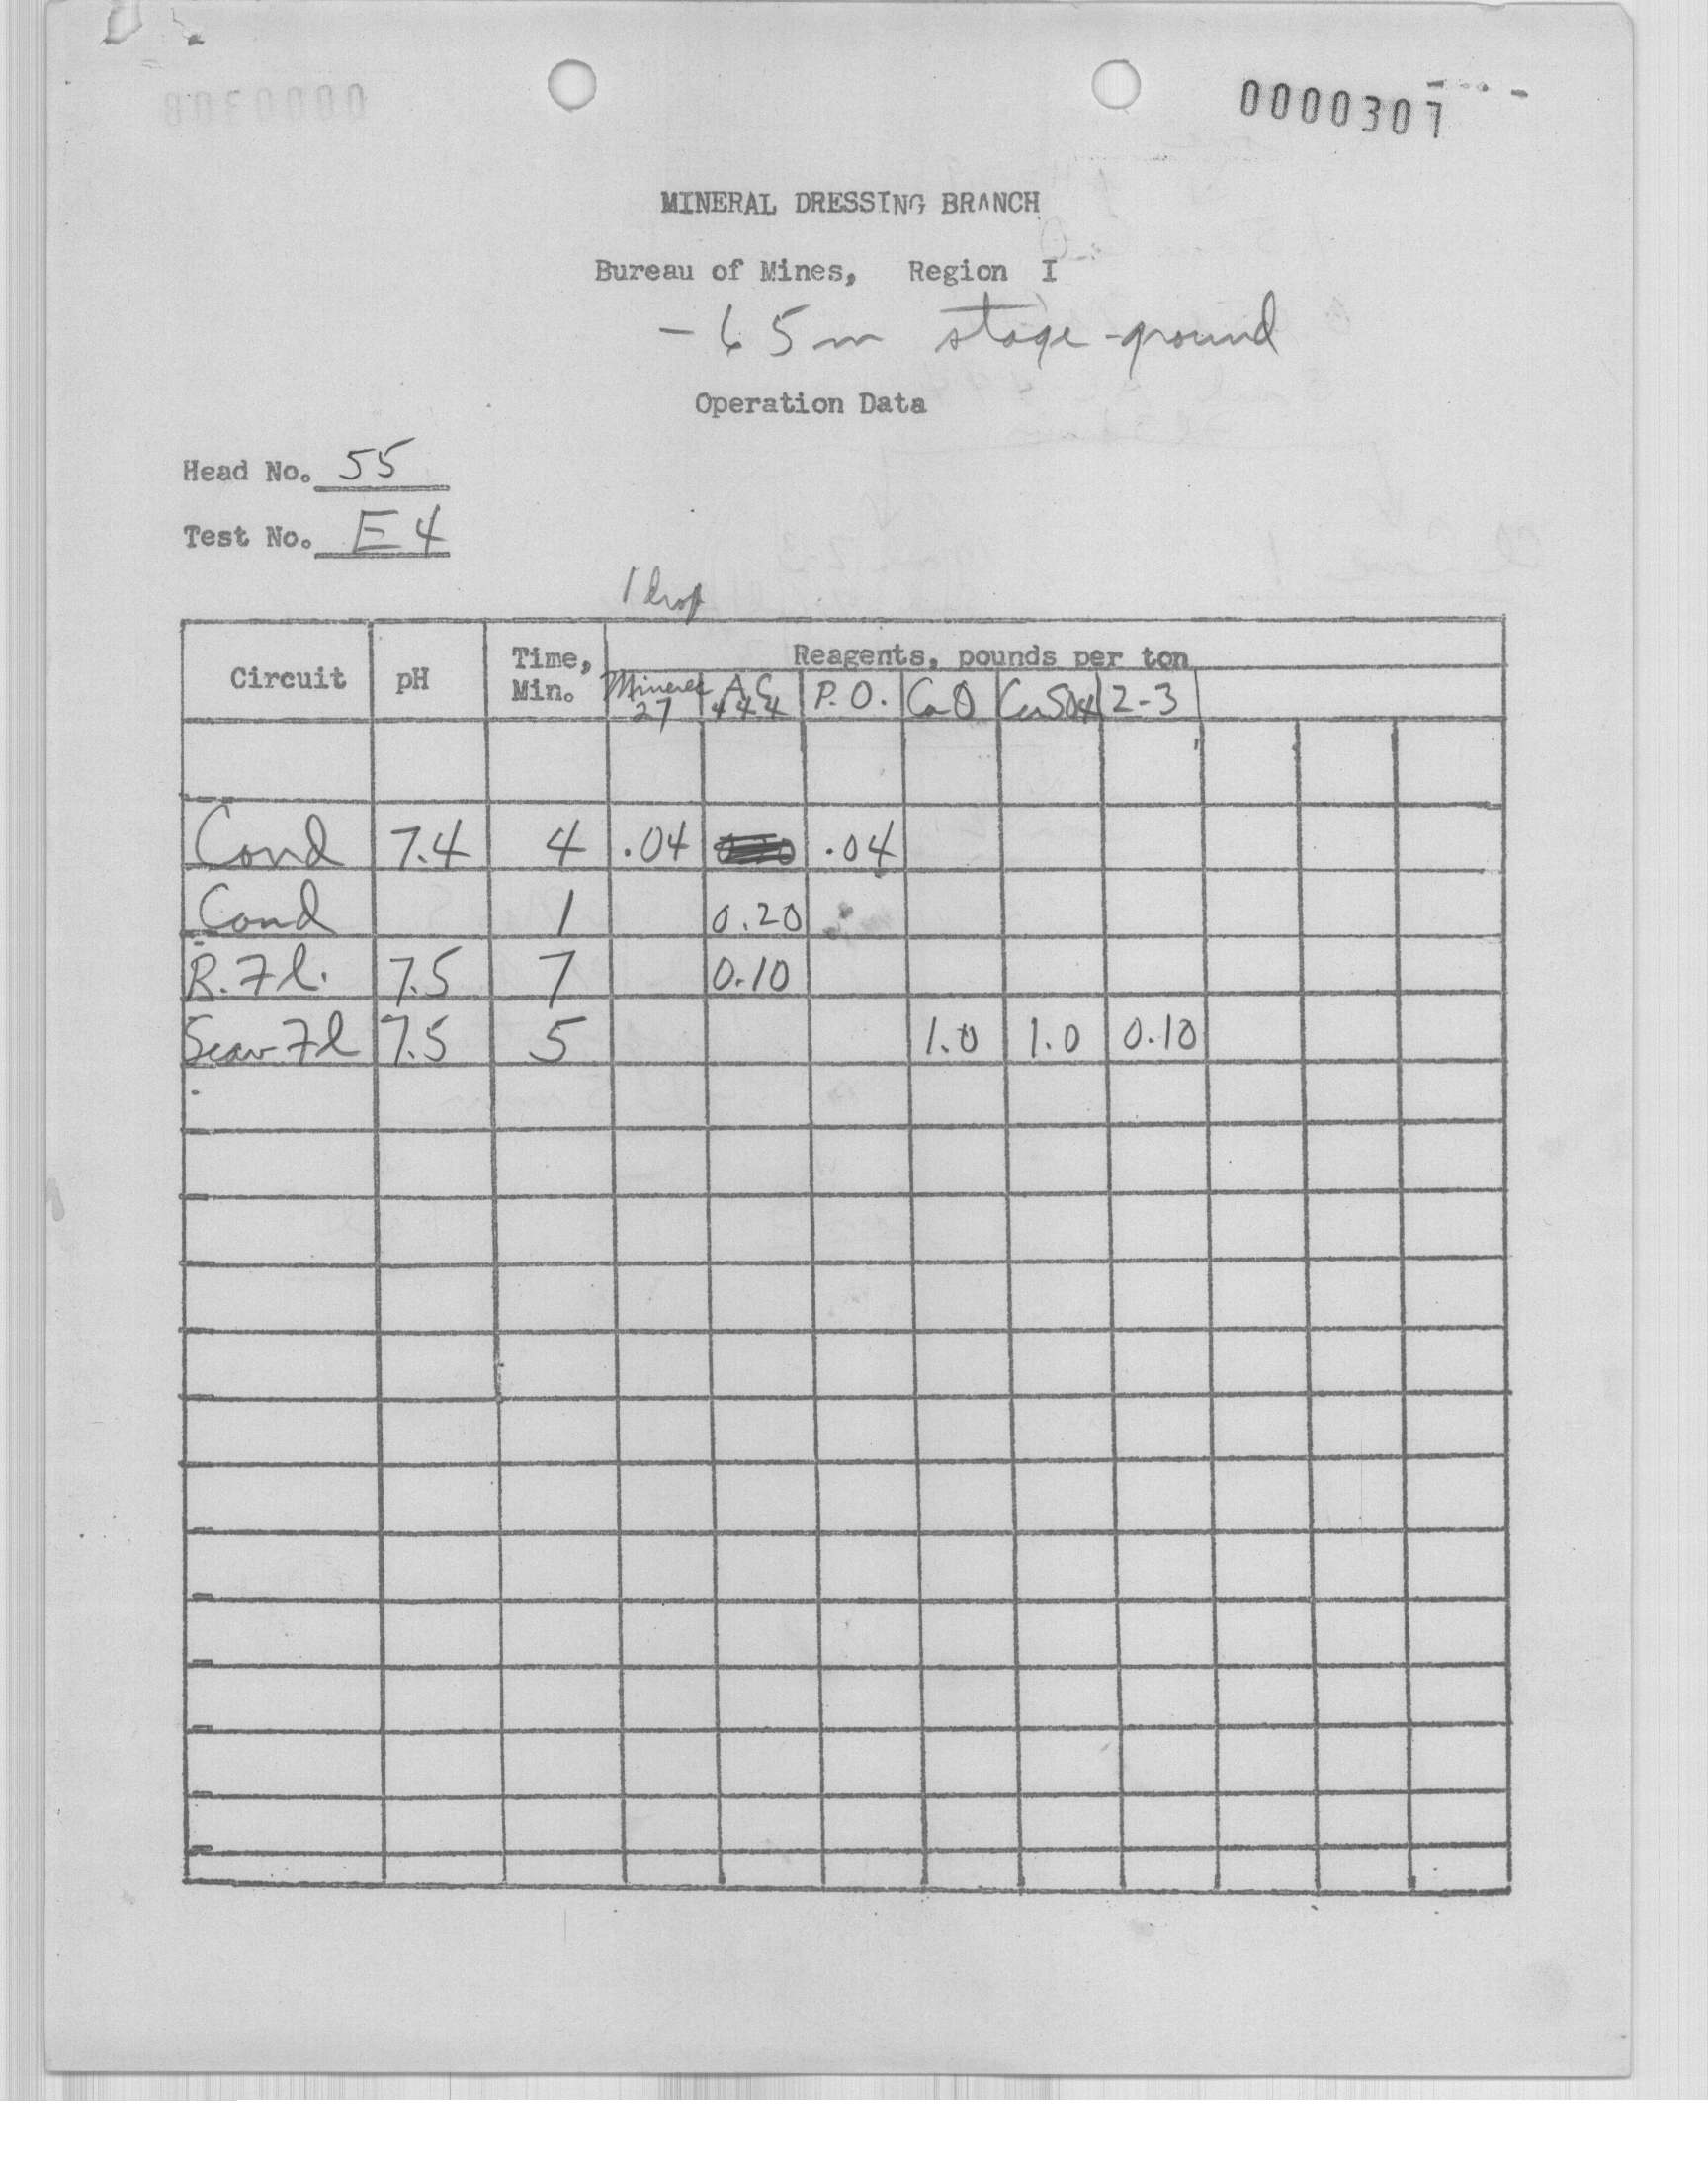 0000307
MINERAL DRESSING BRANCH
Bureau of Mines, Region I
-65m stage-ground
Operation Data
Head No. 55
Test No. E4
1 drop
Circuit pH Time, Min. Reagents, pounds per ton
Minerec 27 A.C. 444 P.O. CaO CuSO4 Z-3
Cond 7.4 4 .04 .04
Cond 1 0.20
R. Fl. 7.5 7 0.10
Scav Fl 7.5 5 1.0 1.0 0.10